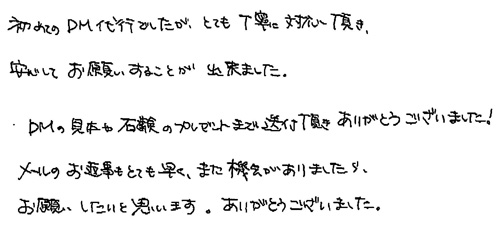 初めてのDM代行でしたが、とても丁寧に対応して頂き、
安心してお願いすることが出来ました。
・DMの見本や石鹸のプレゼントまで送付頂きありがとうございました!
メールのお返事もとても早く、また機会がありましたら、
お願いしたいと思います。ありがとうございました。